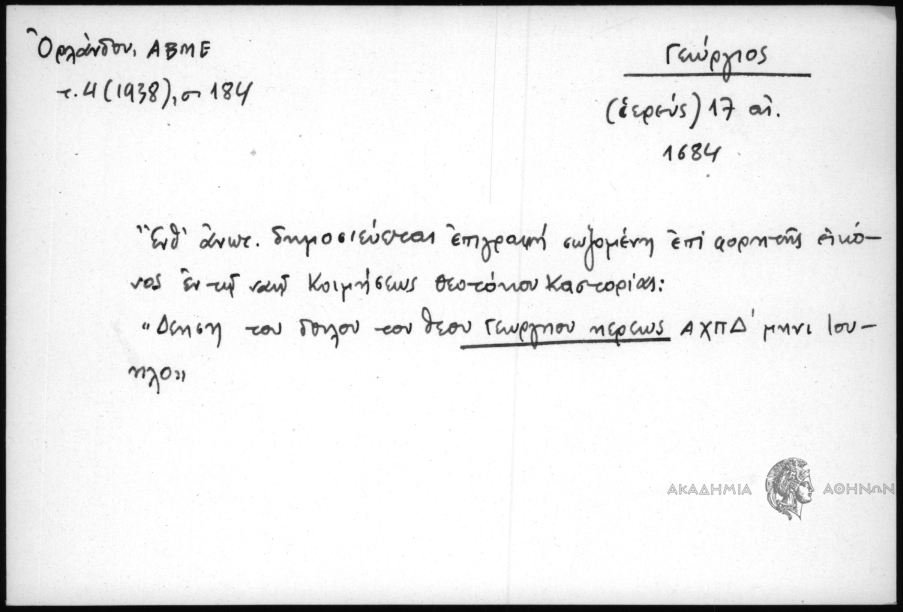 Ὀρλάνδου, ΑΒΜΕ
τ. 4 (1938), σ 184
Γεώργιος
(ἱερεύς) 17 αἰ.
1684
Ἔνθ' ἄνωτ. δημοσιεύεται ἐπιγραφή σωζομένη ἐπί φορητῆς εἰκό-
νος ἐν τῷ ναῷ Κοιμήσεως Θεοτόκου Καστορίας:
"Δεηση του δουλου του θεου Γεωργηου ηερεως ΑΧΠΔ' μηνι Ιου-
ηλο»
ΑΚΑΔΗΜΙΑ ΑΘΗΝΩΝ